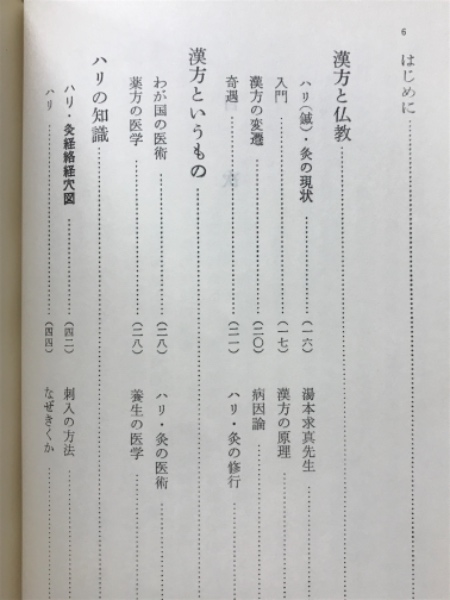 6
はじめに
漢方と仏教
ハリ(鍼)・灸の現状 (一六) 湯本求真先生
入門 (一七) 漢方の原理
漢方の変遷 (二〇) 病因論
奇遇 (二一) ハリ・灸の修行
漢方というもの
わが国の医術 (二八) ハリ・灸の医術
薬方の医学 (二八) 養生の医学
ハリの知識
ハリ・灸経絡経穴図 (四二) 刺入の方法
ハリ (四四) なぜきくか